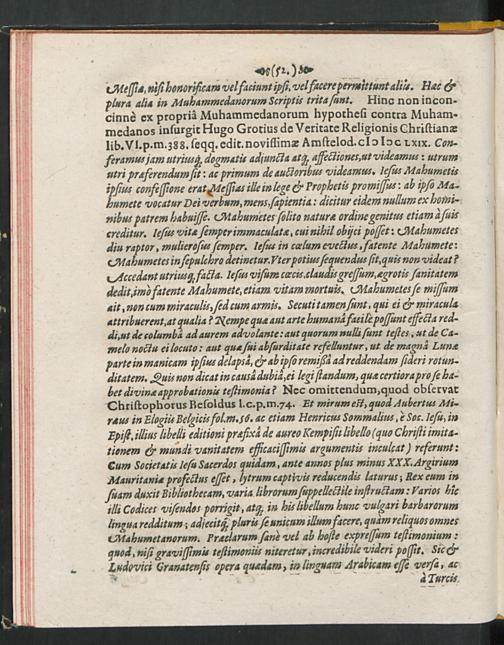 (52.)
Messiæ, nisi honorificam vel faciunt ipsi, vel facere permittunt aliis. Hæc &
plura alia in Muhammedanorum Scriptis trita sunt. Hinc non incon-
cinnè ex propriâ Muhammedanorum hypothesi contra Muham-
medanos insurgit Hugo Grotius de Veritate Religionis Christianæ
lib. VI. p. m. 388. seqq. edit. novissimæ Amstelod. cIɔ Iɔc LXIX. Con-
feramus jam utriusq; dogmatis adjuncta atq; affectiones, ut videamus: utrum
utri præferendum sit: ac primum de auctoribus videamus. Iesus Mahumetis
ipsius confessione erat Messias ille in lege & Prophetis promissus: ab ipso Ma-
humete vocatur Dei verbum, mens, sapientia: dicitur eidem nullum ex homi-
nibus patrem habuisse. Mahumetes solito naturæ ordine genitus etiam à suis
creditur. Iesus vitæ semper immaculatæ, cui nihil objici posset: Mahumetes
diu raptor, mulierosus semper. Iesus in cœlum evectus, fatente Mahumete:
Mahumetes in sepulchro detinetur. Vter potius sequendus sit, quis non videat?
Accedant utriusq; facta. Iesus visum cœcis, claudis gressum, ægrotis sanitatem
dedit, imò fatente Mahumete, etiam vitam mortuis. Mahumetes se missum
ait, non cum miraculis, sed cum armis. Secuti tamen sunt, qui ei & miracula
attribuerent, at qualia? Nempe quæ aut arte humanâ facile possunt effecta red-
di, ut de columbâ ad aurem advolante: aut quorum nulli sunt testes, ut de Ca-
melo noctu ei locuto: aut quæ sui absurditate refelluntur, ut de magnâ Lunæ
parte in manicam ipsius delapsâ, & ab ipso remissâ ad reddendam sideri rotun-
ditatem. Quis non dicat in causâ dubiâ, ei legi standum, quæ certiora pro se ha-
bet divinæ approbationis testimonia? Nec omittendum, quod observat
Christophorus Besoldus l. c. p. m. 74. Et mirum est, quod Aubertus Mi-
ræus in Elogiis Belgicis fol. m. 56. ac etiam Henricus Sommalius, è Soc. Iesu, in
Epist. illius libelli editioni præfixâ de aureo Kempisii libello (quo Christi imita-
tionem & mundi vanitatem efficacissimis argumentis inculcat) referunt:
Cum Societatis Iesu Sacerdos quidam, ante annos plus minus XXX. Argirium
Mauritaniæ profectus esset, lytrum captivis reducendis laturus; Rex eum in
suam duxit Bibliothecam, varia librorum suppellectile instructam: Varios hîc
illi Codices visendos porrigit, atq; in his libellum hunc vulgari barbarorum
lingua redditum; adjecitq; pluris se unicum illum facere, quàm reliquos omnes
Mahumetanorum. Præclarum sanè vel ab hoste expressum testimonium:
quod, nisi gravissimis testimoniis niteretur, incredibile videri possit. Sic &
Ludovici Granatensis opera quædam, in linguam Arabicam esse versa, ac
à Turcis